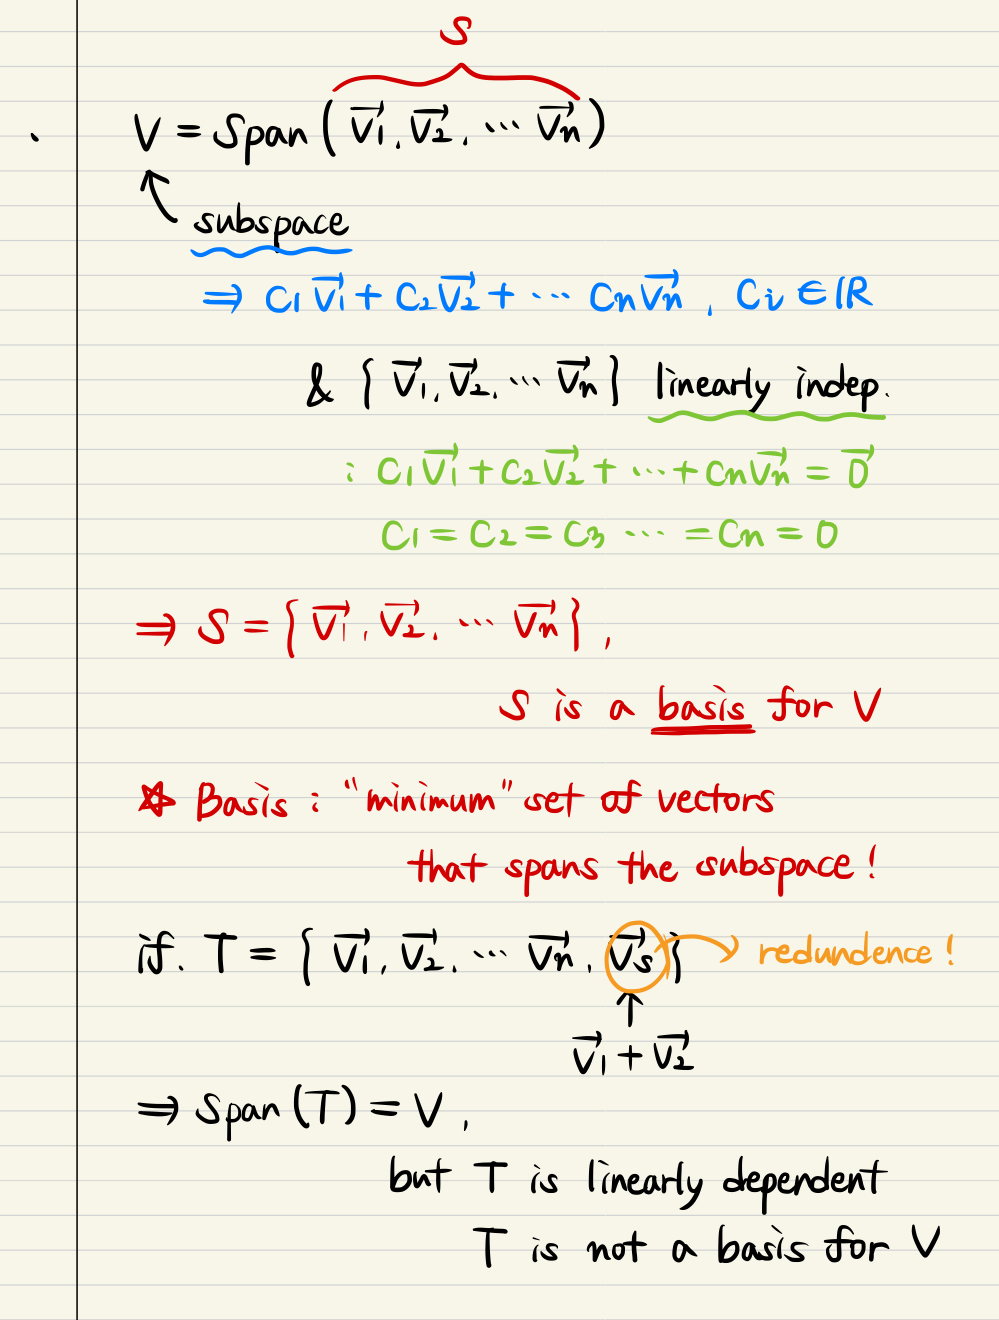 S
. V = Span ( v⃗1, v⃗2, ⋯ v⃗n )
subspace
⇒ C1 v⃗1 + C2 v⃗2 + ⋯ Cn v⃗n , Ci ∈ ℝ
& { v⃗1, v⃗2, ⋯ v⃗n } linearly indep.
: C1 v⃗1 + C2 v⃗2 + ⋯ + Cn v⃗n = 0⃗
C1 = C2 = C3 ⋯ = Cn = 0
⇒ S = { v⃗1, v⃗2, ⋯ v⃗n } ,
S is a basis for V
☆ Basis : "minimum" set of vectors
that spans the subspace !
if. T = { v⃗1, v⃗2, ⋯ v⃗n, v⃗s } → redundence !
↑
v⃗1 + v⃗2
⇒ Span (T) = V ,
but T is linearly dependent
T is not a basis for V